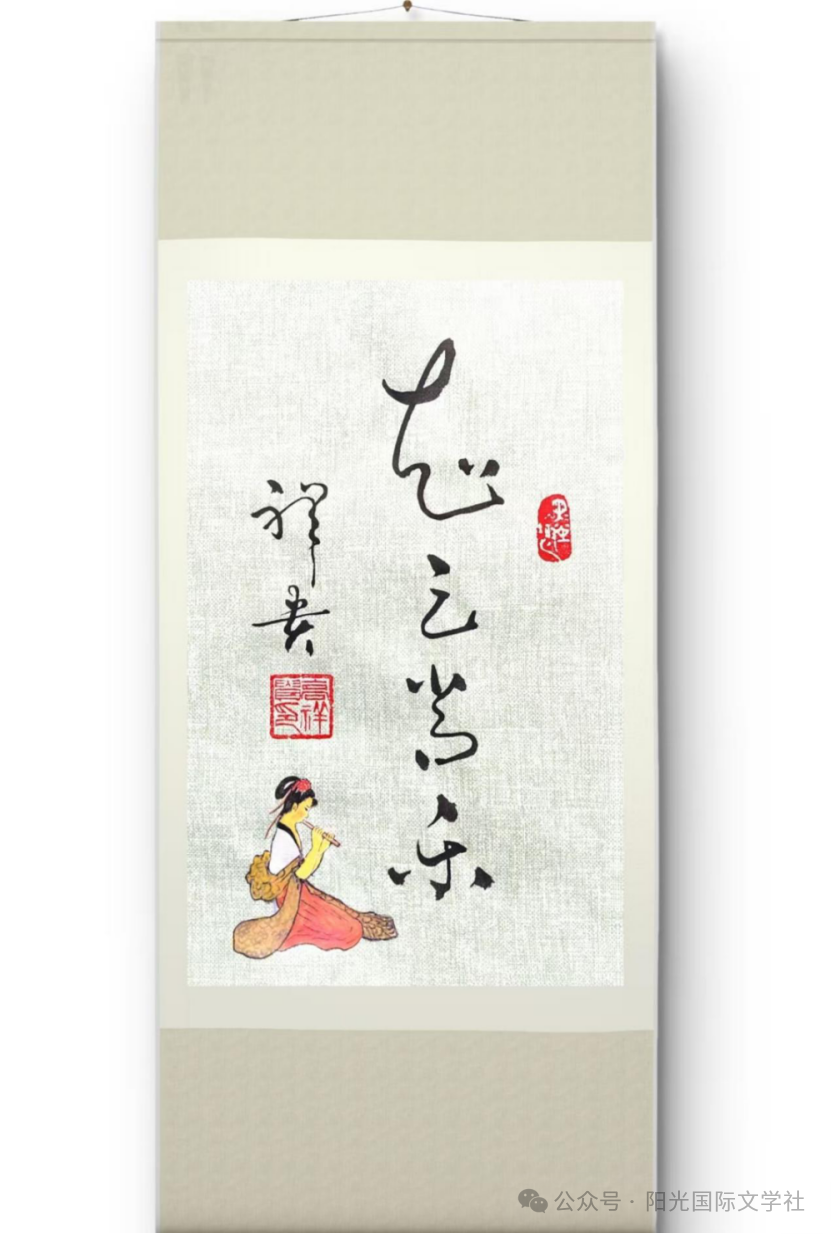 知足常乐
祥贵
高祥贵印
公众号 · 阳光国际文学社